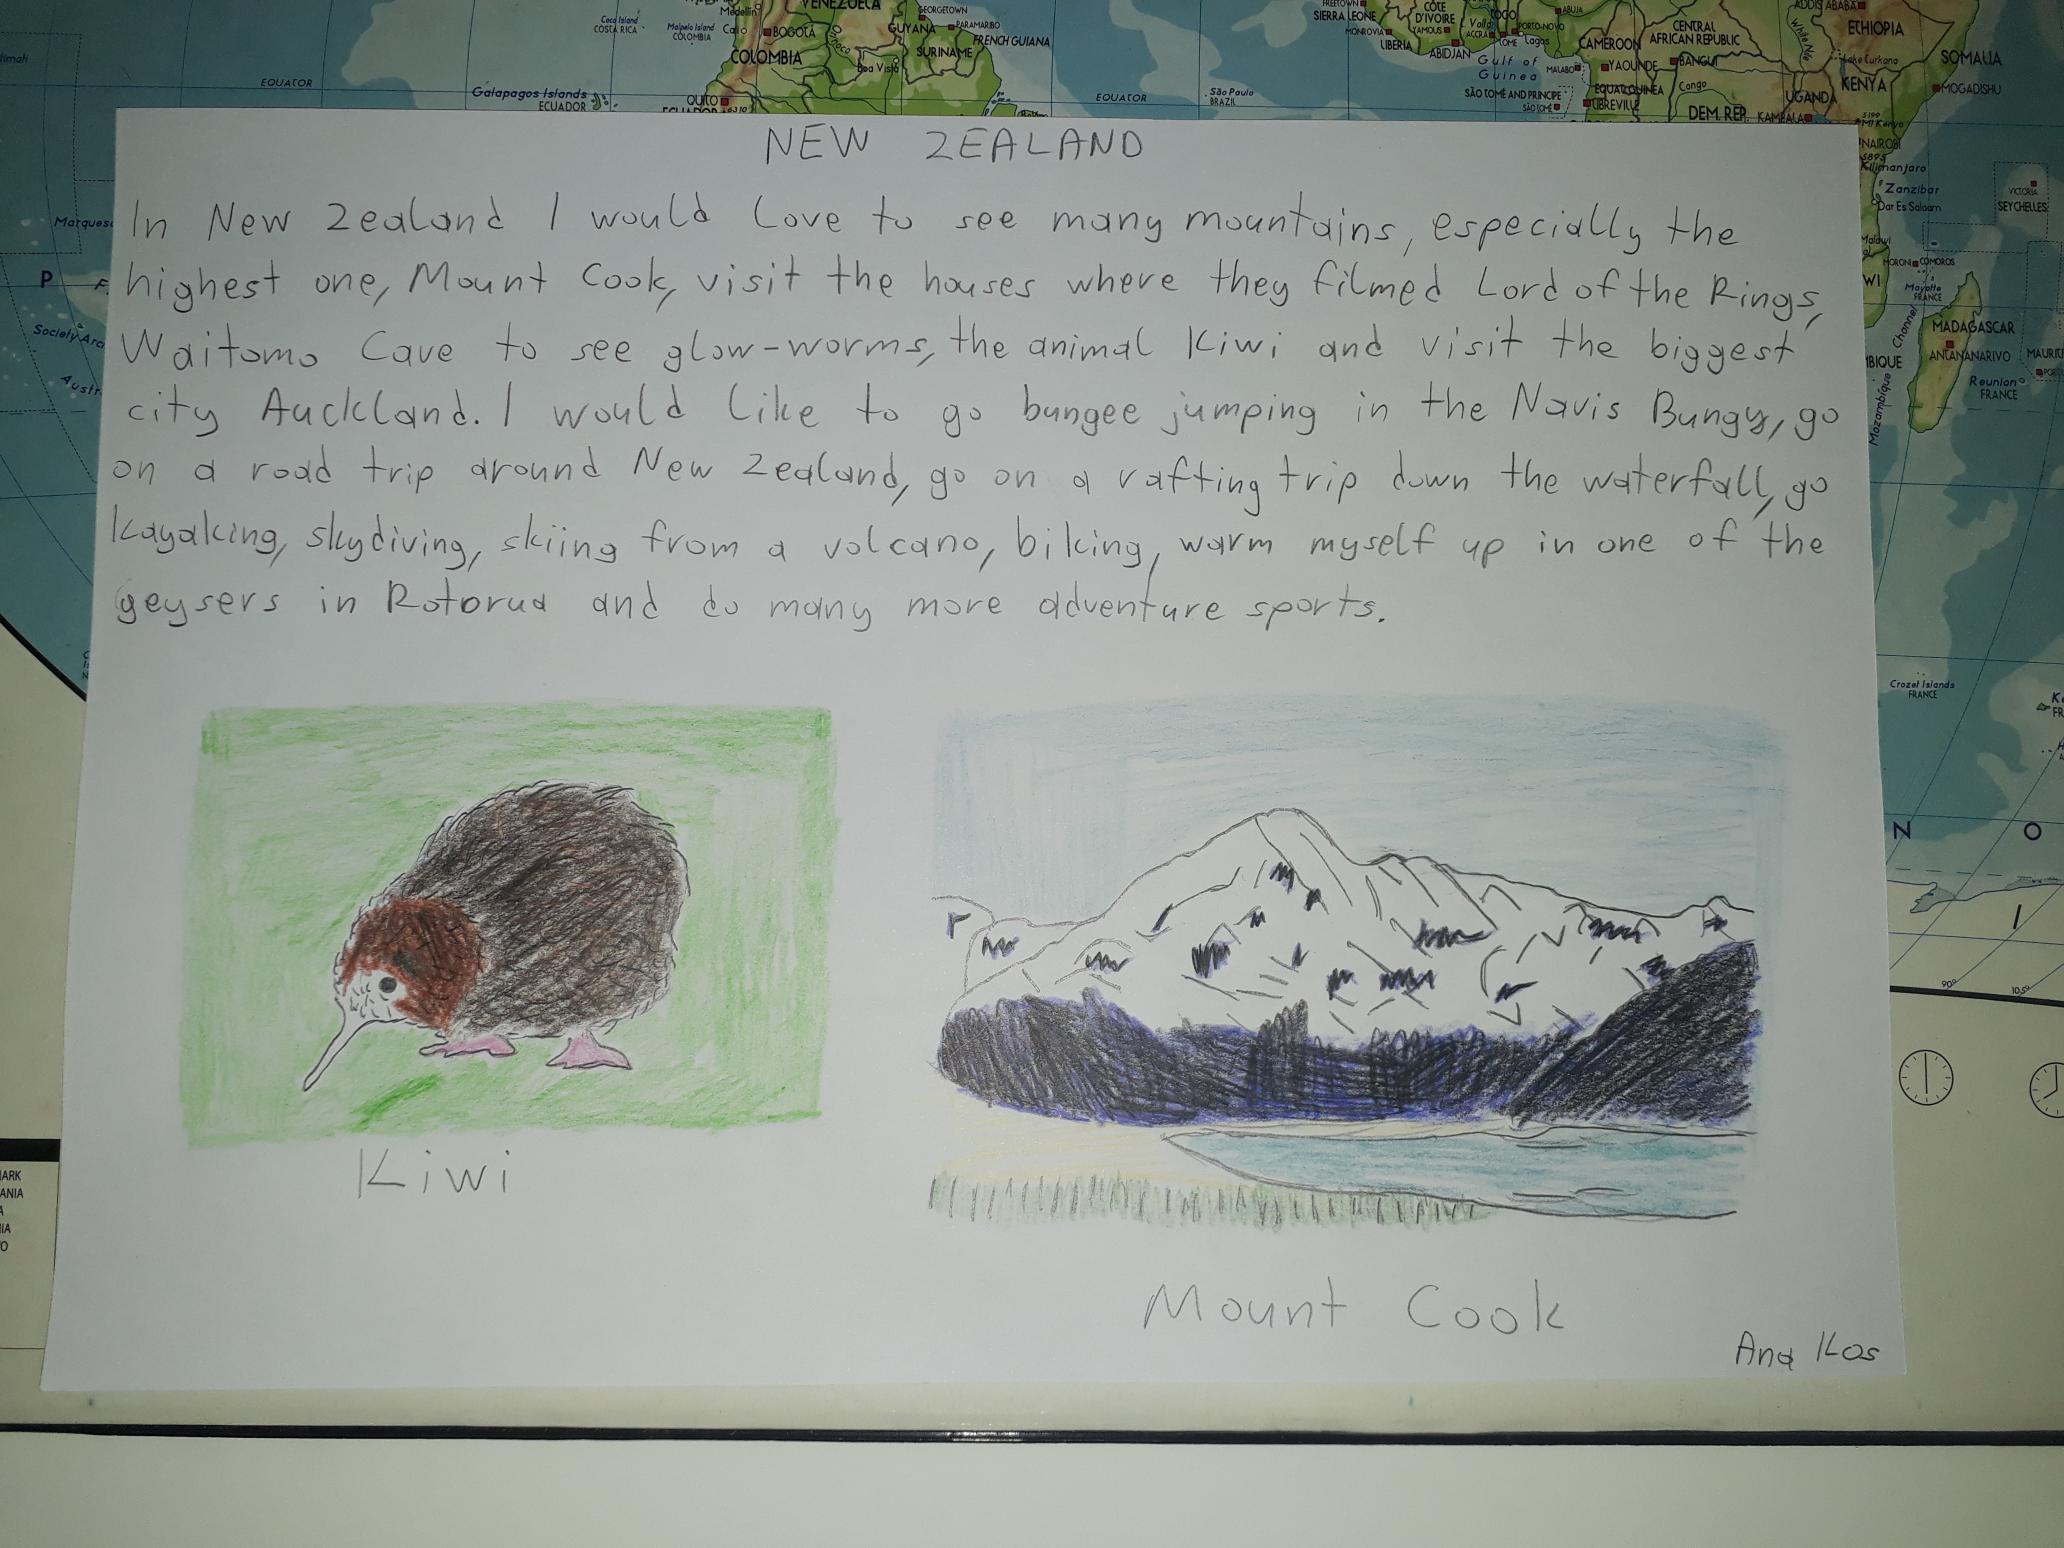 Medellín
VENEZUELA
GEORGETOWN
PARAMARIBO
GUYANA
FRENCH GUIANA
SURINAME
Coco Island
COSTA RICA
Malpelo Island
COLOMBIA
BOGOTÁ
Orinoco
COLOMBIA
Boa Vista
EQUATOR
Galapagos Islands
ECUADOR
QUITO
EQUATOR
São Paulo
BRAZIL
FREETOWN
SIERRA LEONE
MONROVIA
LIBERIA
CÔTE
D'IVOIRE
ABIDJAN
ACCRA
LOME
PORTO-NOVO
Lagos
ABUJA
Gulf of
Guinea
MALABO
CAMEROON
YAOUNDE
CENTRAL
AFRICAN REPUBLIC
BANGUI
SÃO TOMÉ AND PRINCIPE
SÃO TOMÉ
LIBREVILLE
Congo
DEM. REP.
ADDIS ABABA
ETHIOPIA
White Nile
Lake Turkana
SOMALIA
KENYA
UGANDA
KAMPALA
MOGADISHU
Mt Kenya
NAIROBI
5895
Kilimanjaro
Zanzibar
Dar Es Salaam
VICTORIA
SEYCHELLES
MORONI
COMOROS
Mayotte
FRANCE
Mozambique Channel
MADAGASCAR
ANTANANARIVO
Reunion
FRANCE
Crozet Islands
FRANCE
N
O
I
90°
105°
NEW ZEALAND
In New Zealand I would love to see many mountains, especially the
highest one, Mount Cook, visit the houses where they filmed Lord of the Rings,
Waitomo Cave to see glow-worms, the animal Kiwi and visit the biggest
city Auckland. I would like to go bungee jumping in the Navis Bungy, go
on a road trip around New Zealand, go on a rafting trip down the waterfall, go
kayaking, skydiving, skiing from a volcano, biking, warm myself up in one of the
geysers in Rotorua and do many more adventure sports.
Kiwi
Mount Cook
Ana Kos